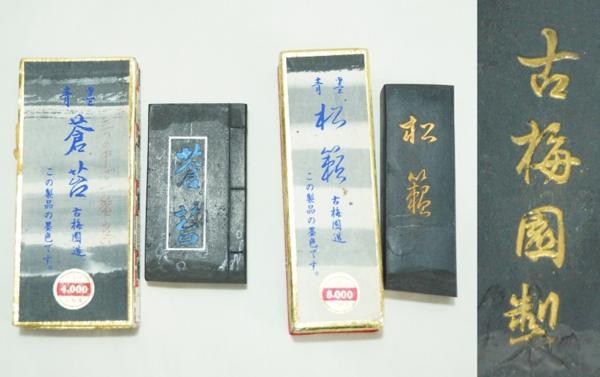 青墨
蒼苔
古梅園造
この製品の墨色です。
4.000
蒼苔
青墨
松籟
古梅園造
この製品の墨色です。
8.000
松籟
古梅園製